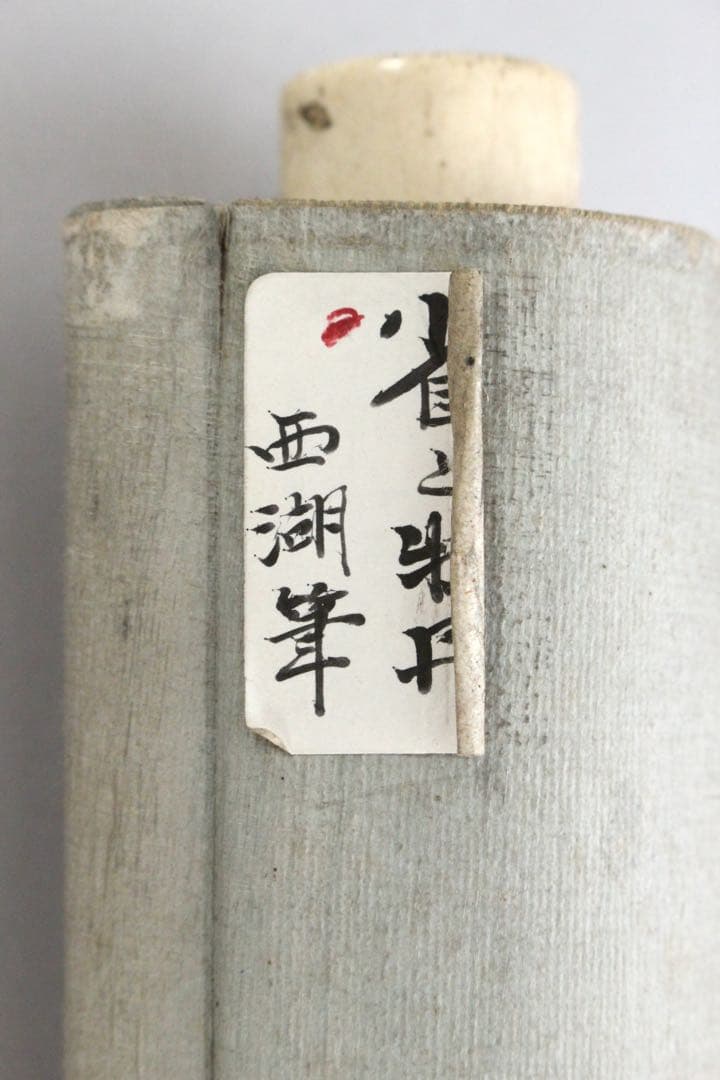 雀と牡丹
西湖筆